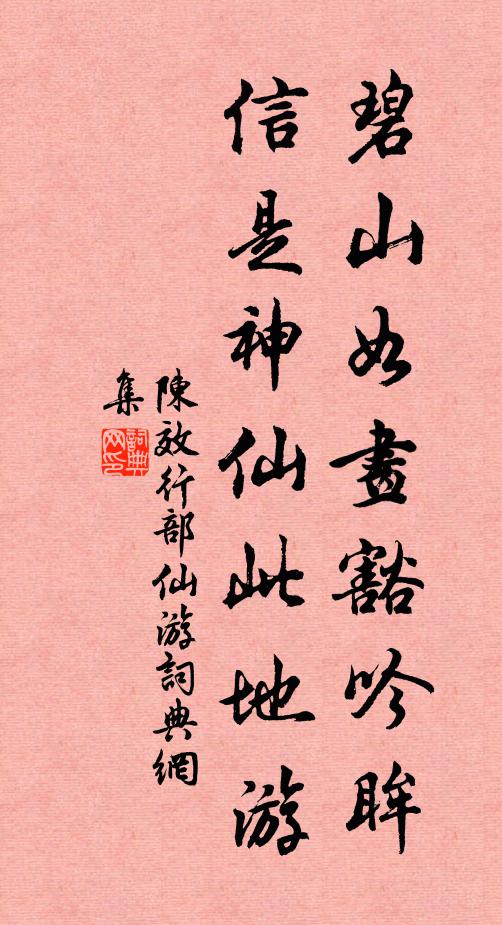 碧山如畫豁吟眸
信是神仙此地游
陳效行部仙游詞典網
集
詞典網印